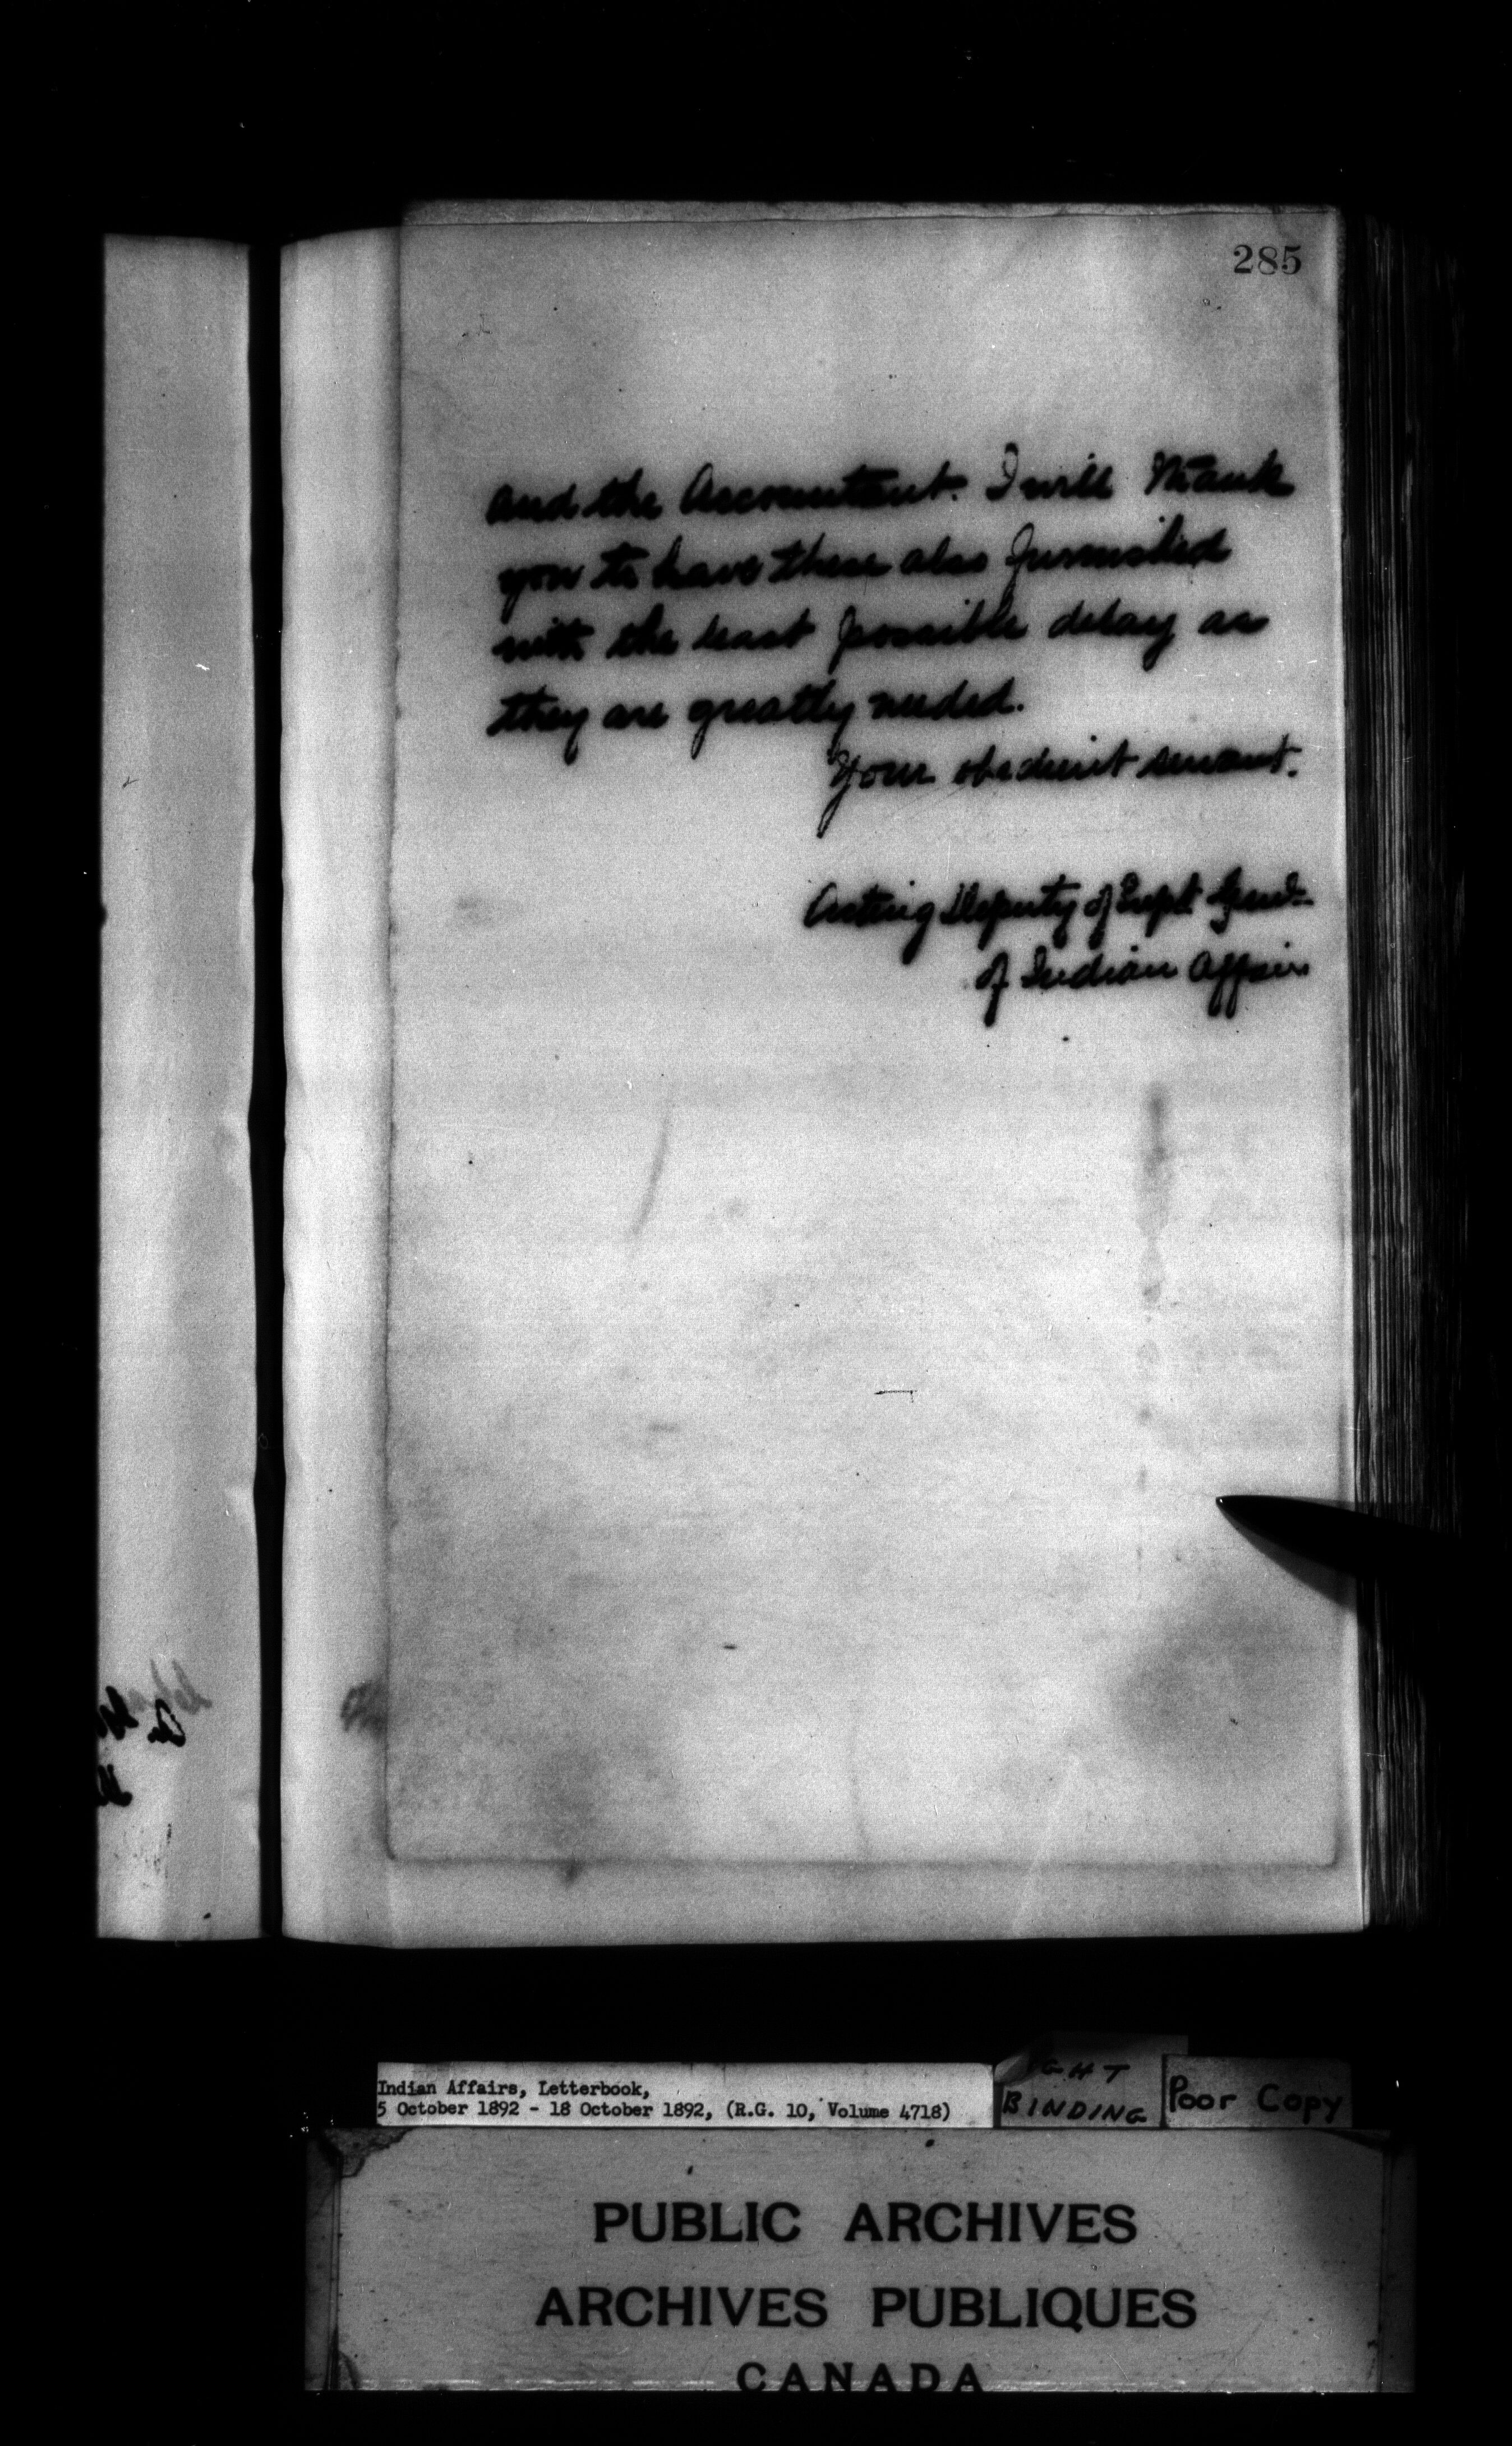 285
and the Accountant. I will thank
you to have these also furnished
with the least possible delay as
they are greatly needed.
Your obedient servant.
Acting Deputy of Supt Genl
of Indian Affairs
Indian Affairs, Letterbook,
5 October 1892 - 18 October 1892, (R.G. 10, Volume 4718)
BINDING
Poor Copy
PUBLIC ARCHIVES
ARCHIVES PUBLIQUES
CANADA